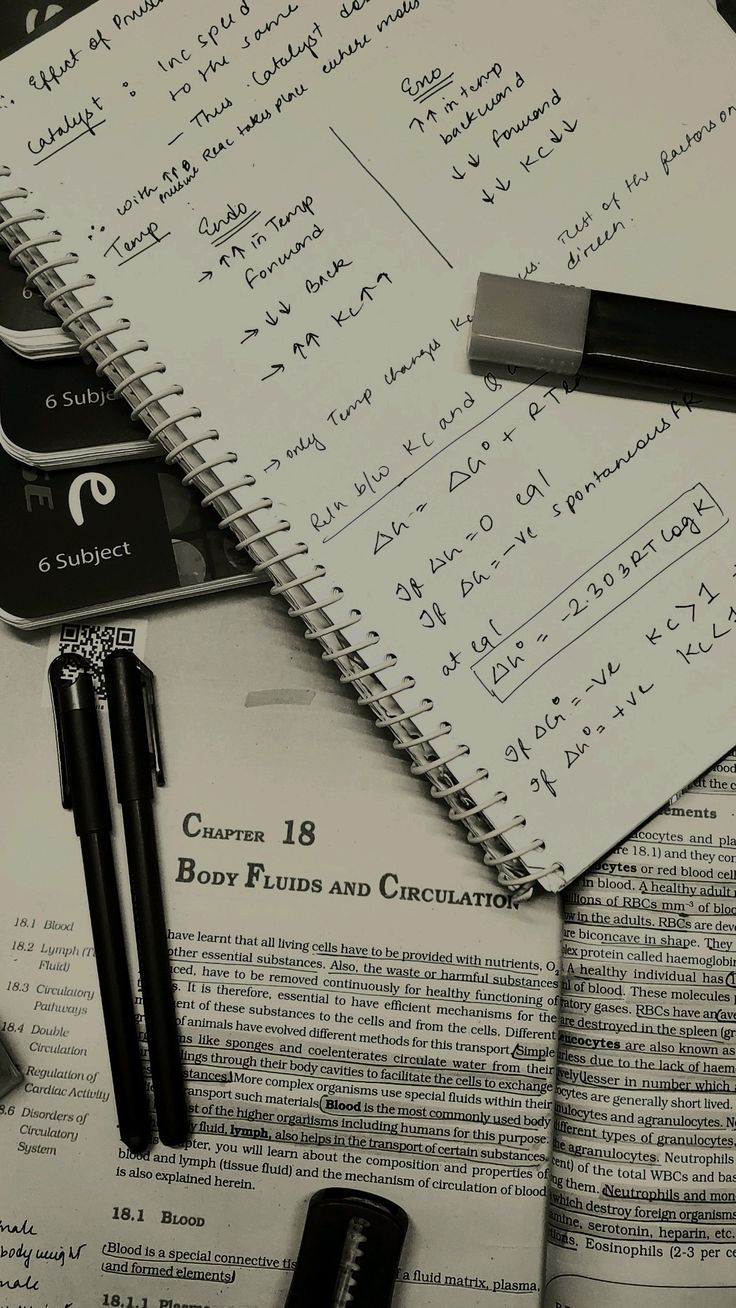 ∴ Effect of
Catalyst : Inc speed
to the same
- Thus Catalyst
∴ with ↑↑ Reac takes place where
Temp
Endo
→ ↑↑ in Temp
forward
→ ↓↓ Back
→ ↑↑ Kc ↑↑
Exo
↑↑ in temp
backward
↓↓ forward
↓↓ Kc ↓↓
→ only Temp changes Kc rest of the factors on
direcn.
Reln b/w Kc and Q
ΔG = ΔG° + RT
If ΔG = 0 eql
If ΔG = -ve spontaneous
at eql
ΔG° = -2.303RT log K
If ΔG° = -ve Kc > 1
If ΔG° = +ve Kc < 1
6
6 Subje
6 Subject
CHAPTER 18
BODY FLUIDS AND CIRCULATION
18.1 Blood
18.2 Lymph
Fluid)
18.3 Circulatory
Pathways
18.4 Double
Circulation
Regulation of
Cardiac Activity
8.6 Disorders of
Circulatory
System
have learnt that all living cells have to be provided with nutrients, O₂
other essential substances. Also, the waste or harmful substances
have to be removed continuously for healthy functioning of
It is therefore, essential to have efficient mechanisms for the
of these substances to the cells and from the cells. Different
of animals have evolved different methods for this transport. Simple
like sponges and coelenterates circulate water from their
through their body cavities to facilitate the cells to exchange
substances. More complex organisms use special fluids within their
transport such materials. Blood is the most commonly used body
of the higher organisms including humans for this purpose.
fluid, lymph, also helps in the transport of certain substances.
you will learn about the composition and properties of
blood and lymph (tissue fluid) and the mechanism of circulation of blood
is also explained herein.
18.1 BLOOD
Blood is a special connective a fluid matrix, plasma,
and formed elements
18.1.1
male
body weight
male
blood
at the
ements
and pla
18.1) and they
or red blood cell
in blood. A healthy adult
of RBCs mm⁻³ of
in the adults. RBCs are
are biconcave in shape. They
protein called
A healthy individual has
of blood. These molecules
gases. RBCs have an
are destroyed in the spleen
are also known as
due to the lack of
lesser in number which
are generally short lived.
and agranulocytes.
different types of granulocytes,
agranulocytes. Neutrophils
of the total WBCs and
them. Neutrophils and
which destroy foreign organisms
serotonin, heparin, etc.
Eosinophils (2-3 per